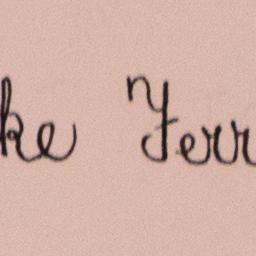 ke Ferr